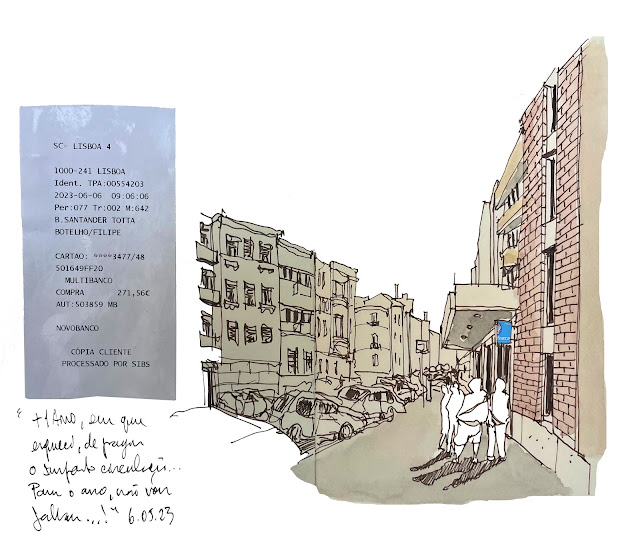 SC- LISBOA 4
1000-241 LISBOA
Ident. TPA:00554203
2023-06-06 09:06:06
Per:077 Tr:002 M:642
B.SANTANDER TOTTA
BOTELHO/FILIPE
CARTAO: ****3477/48
501649FF20
MULTIBANCO
COMPRA 271,56€
AUT:503859 MB
NOVOBANCO
COPIA CLIENTE
PROCESSADO POR SIBS
" +1 Ano, em que
esqueci, de pagar
o Imposto circulação...
Para o ano, não vou
falhar...!" 6.05.23